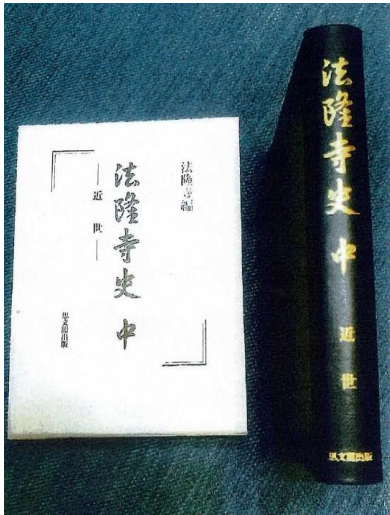 法隆寺編
法隆寺史 中
―近世―
思文閣出版
法隆寺史 中 近世
思文閣出版